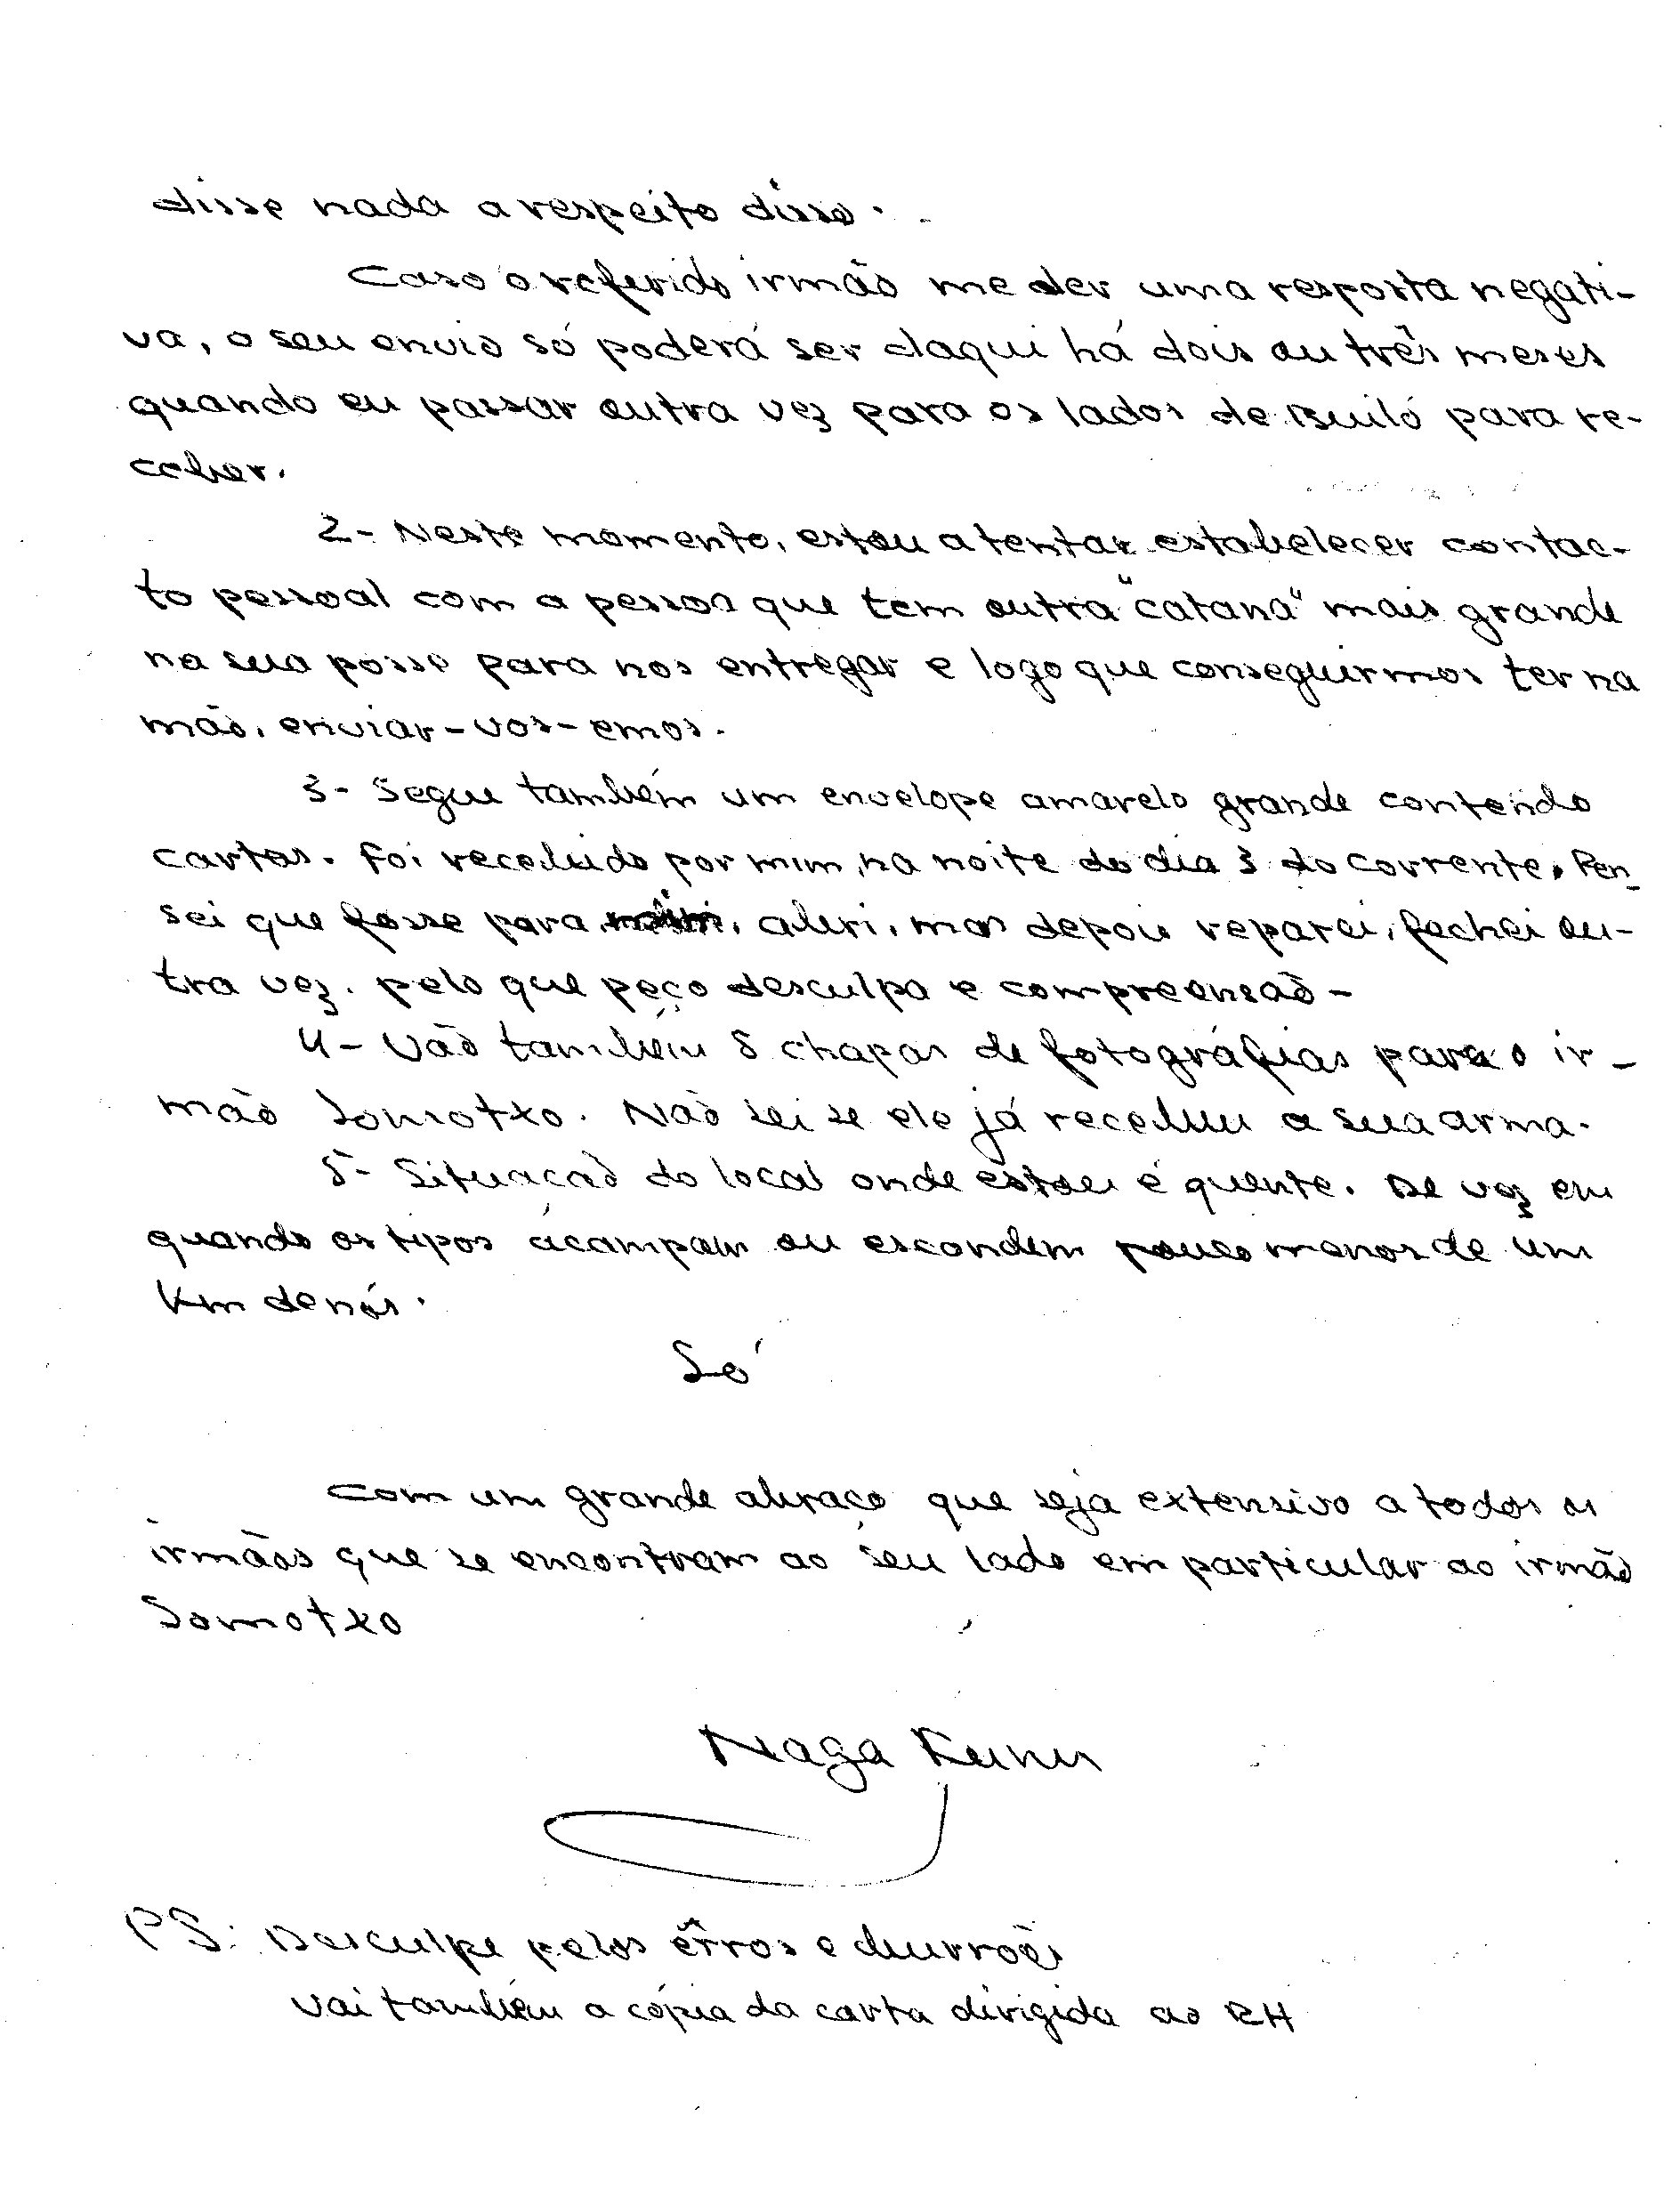 disse nada a respeito disso.
Caso o referido irmão me der uma resposta negati-
va, o seu envio só poderá ser daqui há dois ou três meses
quando eu passar outra vez para os lados de Builó para re-
ceber.
2- Neste momento, estou a tentar estabelecer contac-
to pessoal com a pessoa que tem outra "catana" mais grande
na sua posse para nos entregar e logo que conseguirmos ter na
mão, enviar-vos-emos.
3- Segue também um envelope amarelo grande contendo
cartas. Foi recebido por mim, na noite do dia 3 do corrente. Pen_
sei que fosse para mim, abri, mas depois reparei, fechei ou-
tra vez. pelo que peço desculpa e compreensão-
4- Vão também 5 chapas de fotográfias para o ir-
mão Somotxo. Não sei se ele já recebeu a sua arma.
5- Situação do local onde estou é quente. De vez em
quando os tipos acampam ou escondem pouco menos de um
Km de nós.
Só
Com um grande abraço que seja extensivo a todos os
irmãos que se encontram ao seu lado em particular ao irmão
Somotxo
Naga
PS: Desculpe pelos êrros e burrões
Vai também a cópia da carta dirigida ao RH